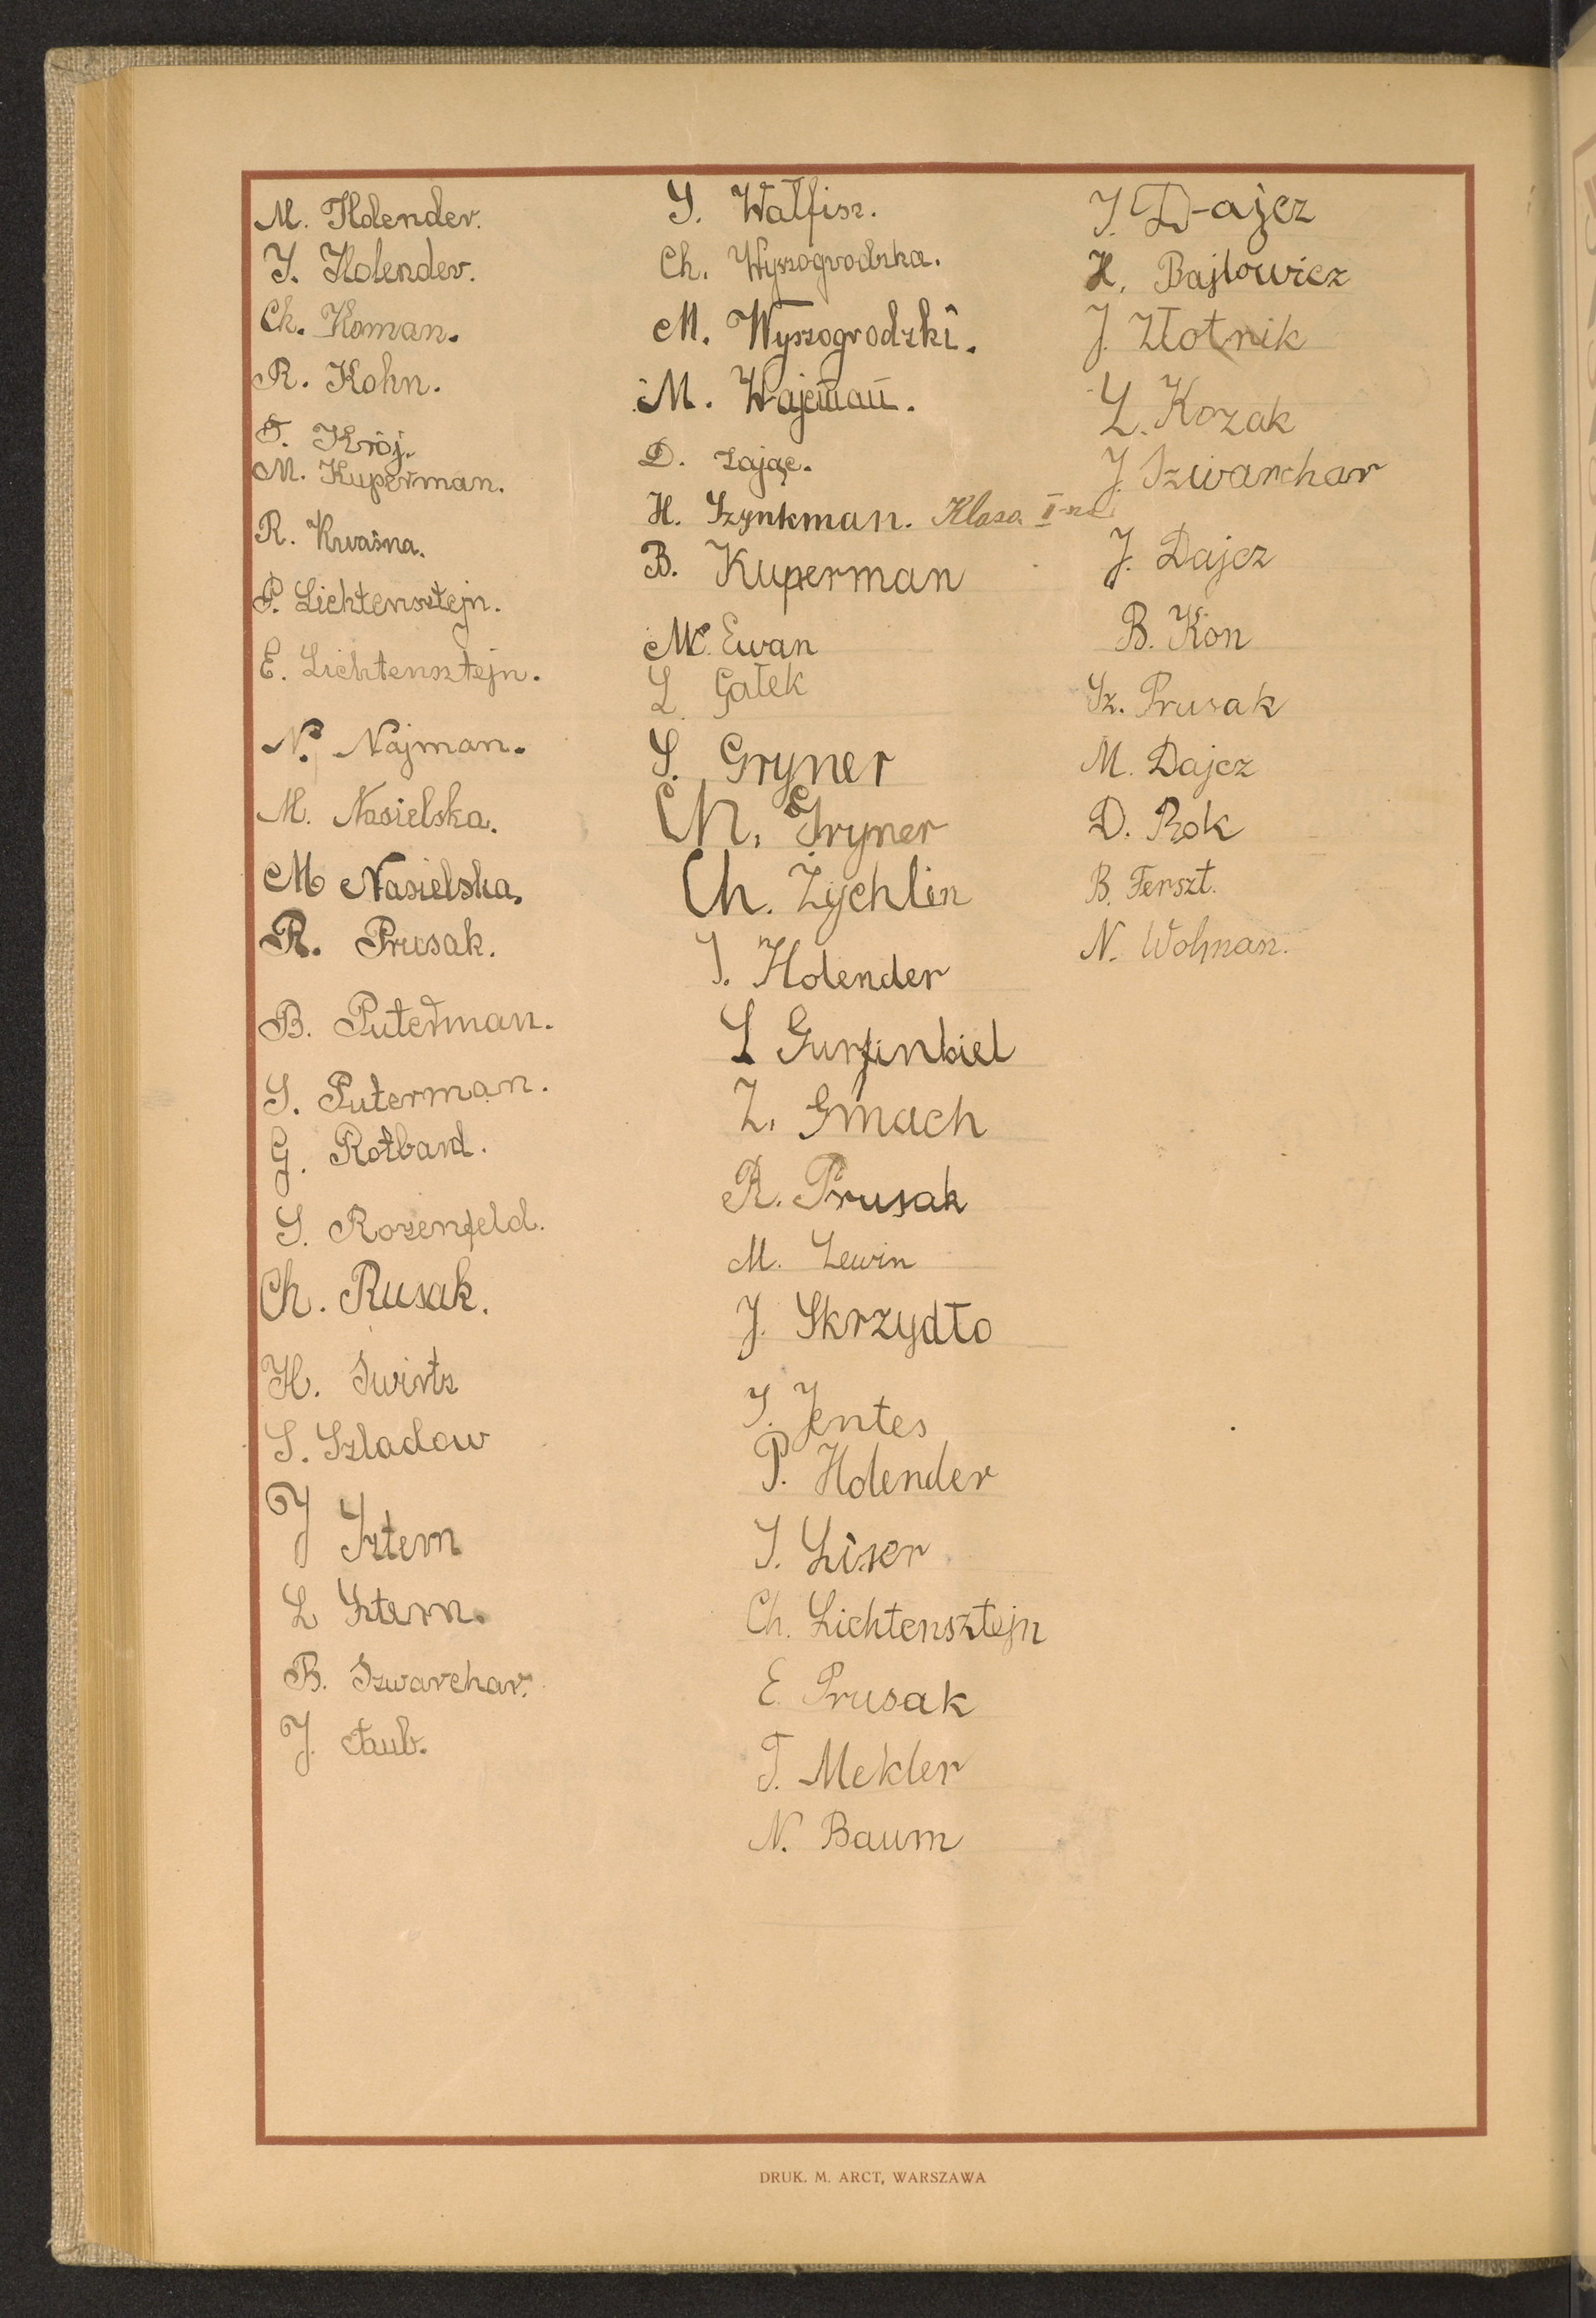 M. Holender.
I. Holender.
Ch. Koman.
R. Kohn.
T. Krój.
M. Kuperman.
R. Kwaśna.
P. Lichtensztejn.
E. Lichtensztejn.
N. Najman.
M. Nasielska.
M Nasielska.
R. Prusak.
B. Puterman.
S. Puterman.
G. Rotbard.
S. Rozenfeld.
Ch. Rusak.
H. Swirts
S. Szladow
J Sztern
L Sztern.
B. Szwarchar.
J. Taub.
S. Walfisz.
Ch. Wyszogrodzka.
M. Wyszogrodzki.
M. Wajcman.
D. Zając.
H. Szynkman. Klasa I-na
B. Kuperman
M. Ewan
L. Gałek
S. Gryner
Ch. Gryner
Ch. Żychlin
I. Holender
L Gurfinkiel
Z. Gmach
R. Prusak
M. Lewin
J. Skrzydło
I. Jentes
P. Holender
I. Liser
Ch. Lichtensztejn
E. Prusak
T. Mekler
N. Baum
I. D-ajcz
H. Bajlowicz
J. Złotnik
L. Kozak
J. Szwarchar
J. Dajcz
B. Kon
Sz. Prusak
M. Dajcz
D. Rok
B. Ferszt.
N. Wolman.
DRUK. M. ARCT, WARSZAWA